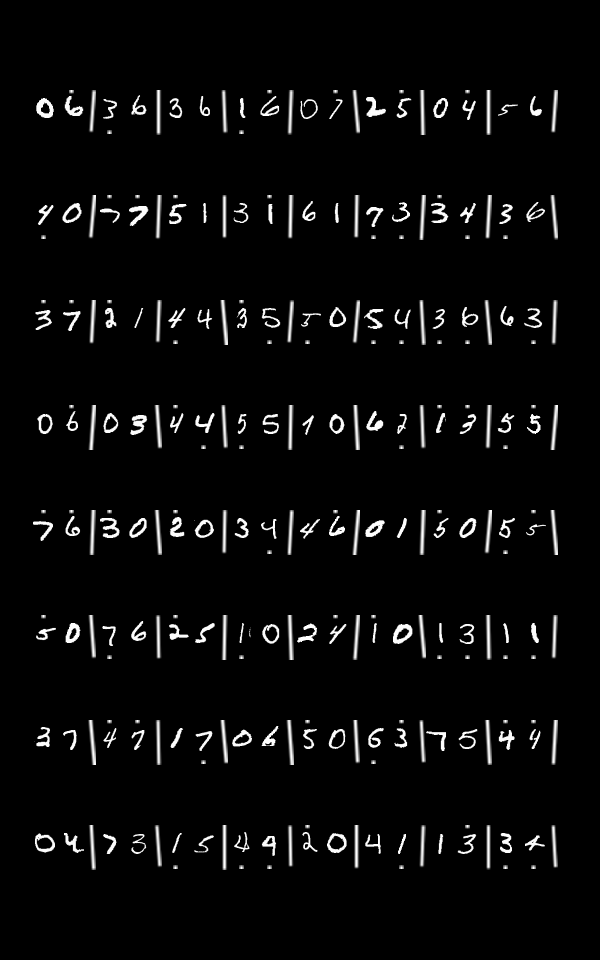 0 6 | 3 6 | 3 6 | 1 6 | 0 7 | 2 5 | 0 4 | 5 6 |
4 0 | 7 7 | 5 1 | 3 1 | 6 1 | 7 3 | 3 4 | 3 6 |
3 7 | 2 1 | 4 4 | 3 5 | 5 0 | 5 4 | 3 6 | 6 3 |
0 6 | 0 3 | 4 4 | 5 5 | 1 0 | 6 2 | 1 3 | 5 5 |
7 6 | 3 0 | 2 0 | 3 4 | 4 6 | 0 1 | 5 0 | 5 5 |
5 0 | 7 6 | 2 5 | 1 0 | 2 4 | 1 0 | 1 3 | 1 1 |
3 7 | 4 7 | 1 7 | 0 6 | 5 0 | 6 3 | 7 5 | 4 4 |
0 4 | 7 3 | 1 5 | 4 4 | 2 0 | 4 1 | 1 3 | 3 4 |